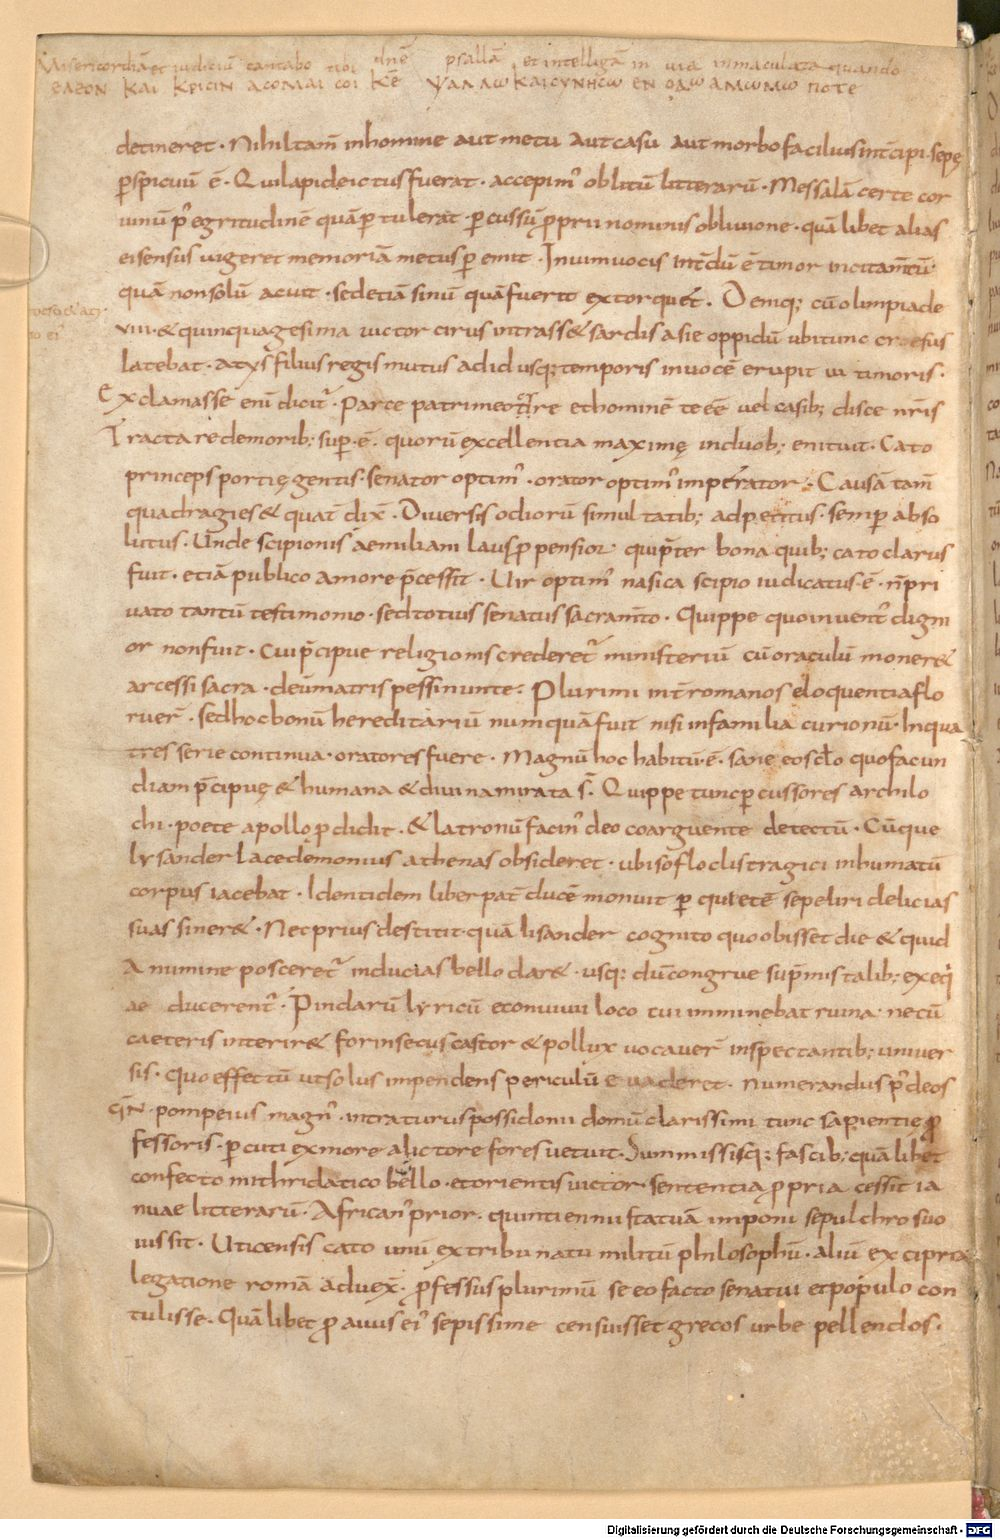 Misericordiā et iudiciū cantabo tibi dn̄e psallā et intelligā in uia inmaculata quando
ΕΛΕΟΝ ΚΑΙ ΚΡΙCΙΝ ΑCΟΜΑΙ CΟΙ Κ̄Ε ΨΑΛΛΩ ΚΑΙ CΥΝΗCΩ ΕΝ ΟΔΩ ΑΜΩΜΩ ΠΟΤΕ
detineret · Nihil tam̄ inhomine aut metu aut casu aut morbo facilius int̄cipi · sepę
ꝑspicuū ē · Qui lapide ictus fuerat · accepim᾽ oblitū litterarū · Messalā certe cor
uinū p᾽ egritudinē quā ꝑtulerat · ꝑcussū ꝓprii nominis obliuione · quālibet alias
ei sensus uigeret memoriā metus ꝑemit · In uim uocis int̄dū ē timor incitam̄tū
quā non solū acuit · sed etiā si nūquā fuerit extorquet · Deniq; cū olimpiade
VIII · & quinquagesima uictor cirus intrass& sardis asie oppidū ubi tunc croesus
latebat · atys filius regis mutus ad id usq; temporis in uocē erupit ui timoris ·
Exclamasse enī dicit᾽ · Parce patri meo cire et hominē te eē uel casib; disce nr̄is
Tractare de morib; suꝑ · ē · quorū excellentia maximę in duob; enituit · Cato
princeps portię gentis · senator optim᾽ · orator optim᾽ imperator · Causā tam̄
quadragies & quat̄ dix̄ · Diuersis odiorū simultatib; adpetitus · semꝑ abso
lutus · Unde scipionis aemiliani laus ꝓpensior qui p̄ter bona quib; cato clarus
fuit · etiā publico amore p̄cessit · Uir optim᾽ nasica scipio iudicatus · ē · n̄ pri
uato tantū testimonio · sed totius senatus sacram̄to · Quippe quo inuent᾽ digni
or non fuit · Cui p̄cipue religionis crederet᾽ ministeriū cū oraculū moner&
arcessi sacra · deū matris pessinunte · Plurimi int̄ romanos eloquentia flo
ruer̄ · sed hoc bonū hereditariū numquā fuit nisi in familia curionū · In qua
tres serie continua · oratores fuere · Magnū hoc habitū · ē · sane eo sc̄lo quo facun
diam p̄cipuę & humana & diuina mirata s̄ · Quippe tunc ꝑcussores archilo
chi · poete apollo ꝓdidit · & latronū facin᾽ deo coarguente detectū · Cūque
lysander lacedemonius athenas obsideret · ubi sofloclis tragici inhumatū
corpus iacebat · Identidem liber pat̄ ducē monuit ꝑ quietē sepeliri delicias
suas siner& · Nec prius destitit quā lisander cognito quo obisset die & quid
A numine posceret᾽ inducias bello dar& · usq; dū congrue sup̄mis talib; exeq᾽
ae ducerent᾽ · Pindarū lyricū e conuiuii loco cui imminebat ruina ne cū
caeteris interir& forinsecus castor & pollux uocauer̄ inspectantib; uniuer
sis · quo effectū ut solus impendens periculū euaderet · Numerandus p᾽ deos
Gn̄ · pompeius magn᾽ · intraturus possidonii domū clarissimi tunc sapientię ꝓ
fessoris · ꝑcuti ex more a lictore fores uetuit · Summissisq; fascib; quālibet
confecto mithridatico bello · et orientis uictor · sententia ꝓpria cessit ia
nuae litterarū · African᾽ prior · quinti ennii statuā imponi sepulchro suo
iussit · Uticensis cato unū ex tribunatu militū philosophū · aliū ex cipria
legatione romā aduex̄ · ꝓfessus plurimū se eo facto senatui et populo con
tulisse · Quālibet ꝓauus ei᾽ sepissime censuisset grecos urbe pellendos ·